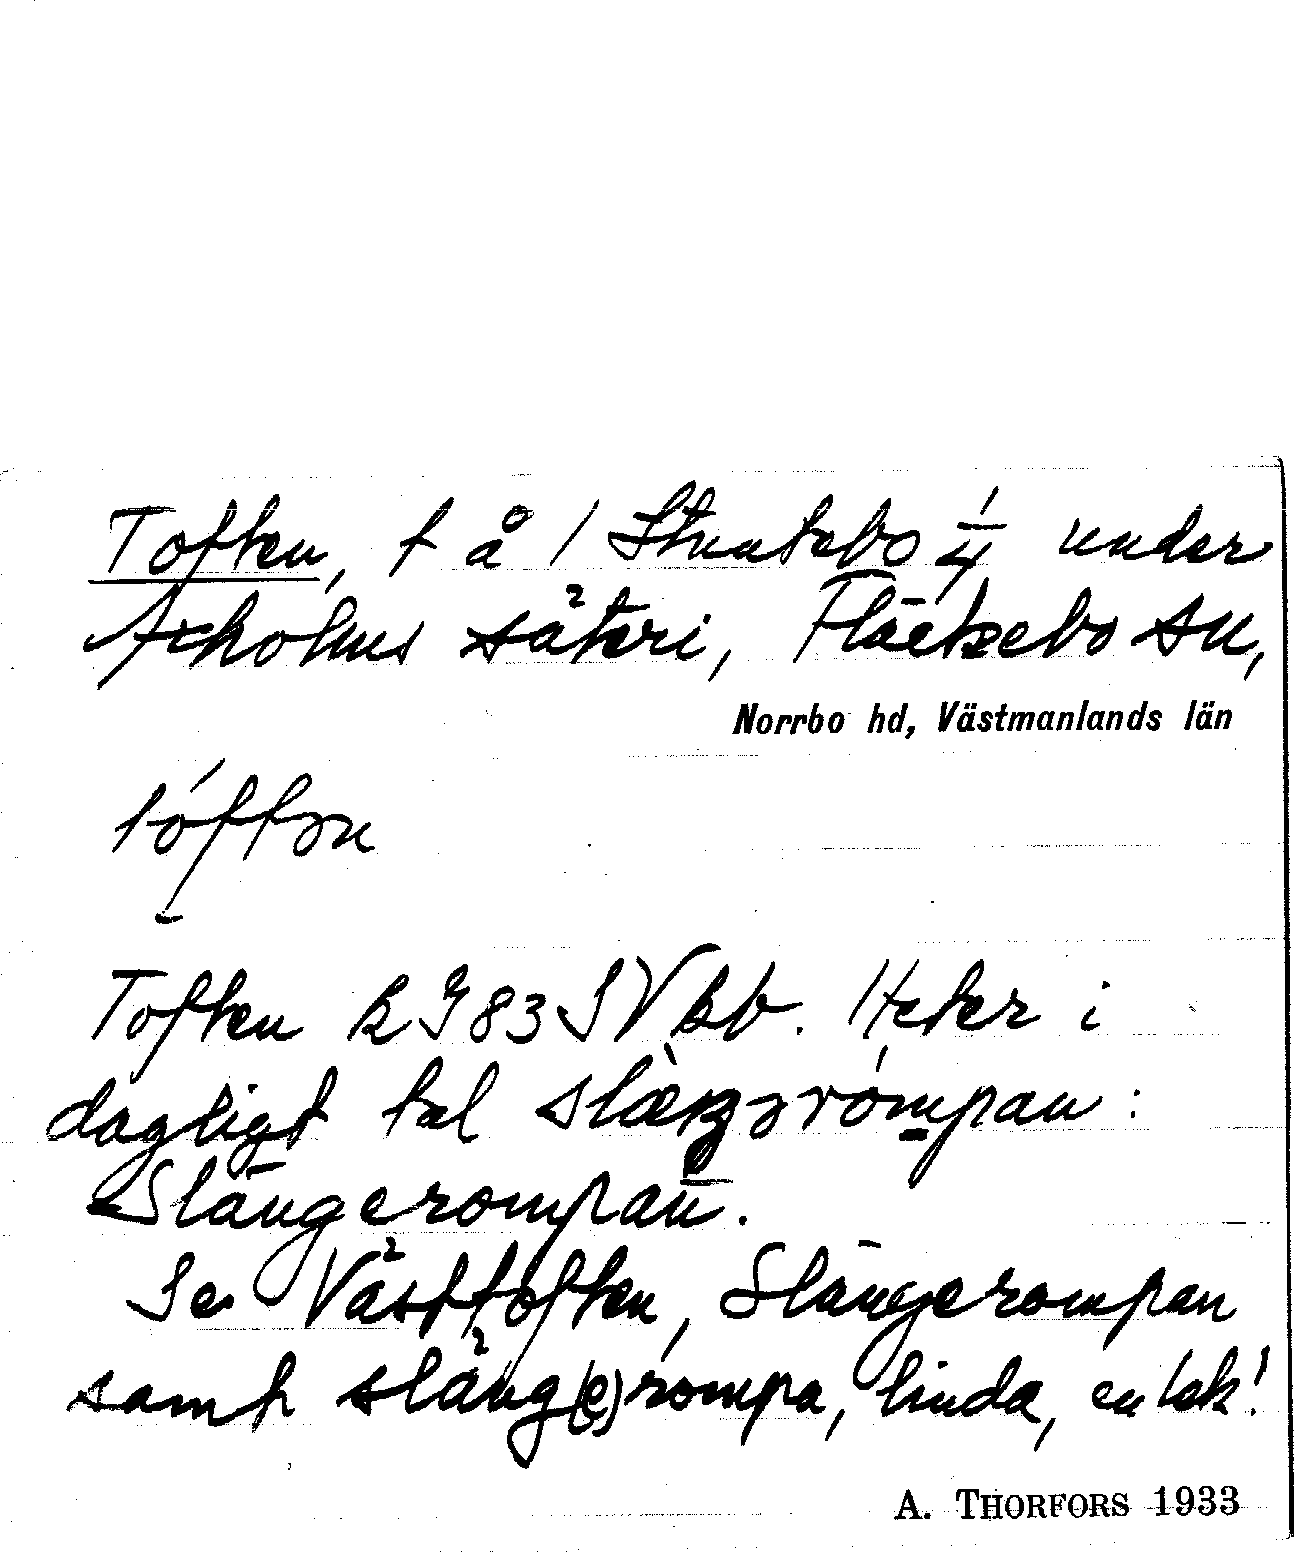 Toften, t å 1 Stuntebo 1/4 under
Axholms säteri, Fläckebo sn,
Norrbo hd, Västmanlands län
tóftən
Toften k J 83 SV bb. Heter i
dagligt tal slæŋərómpan:
Slängerompan.
Se Västtoften, Slängerompan
samt släng(e)rompa, linda, en lek!
A. THORFORS 1933